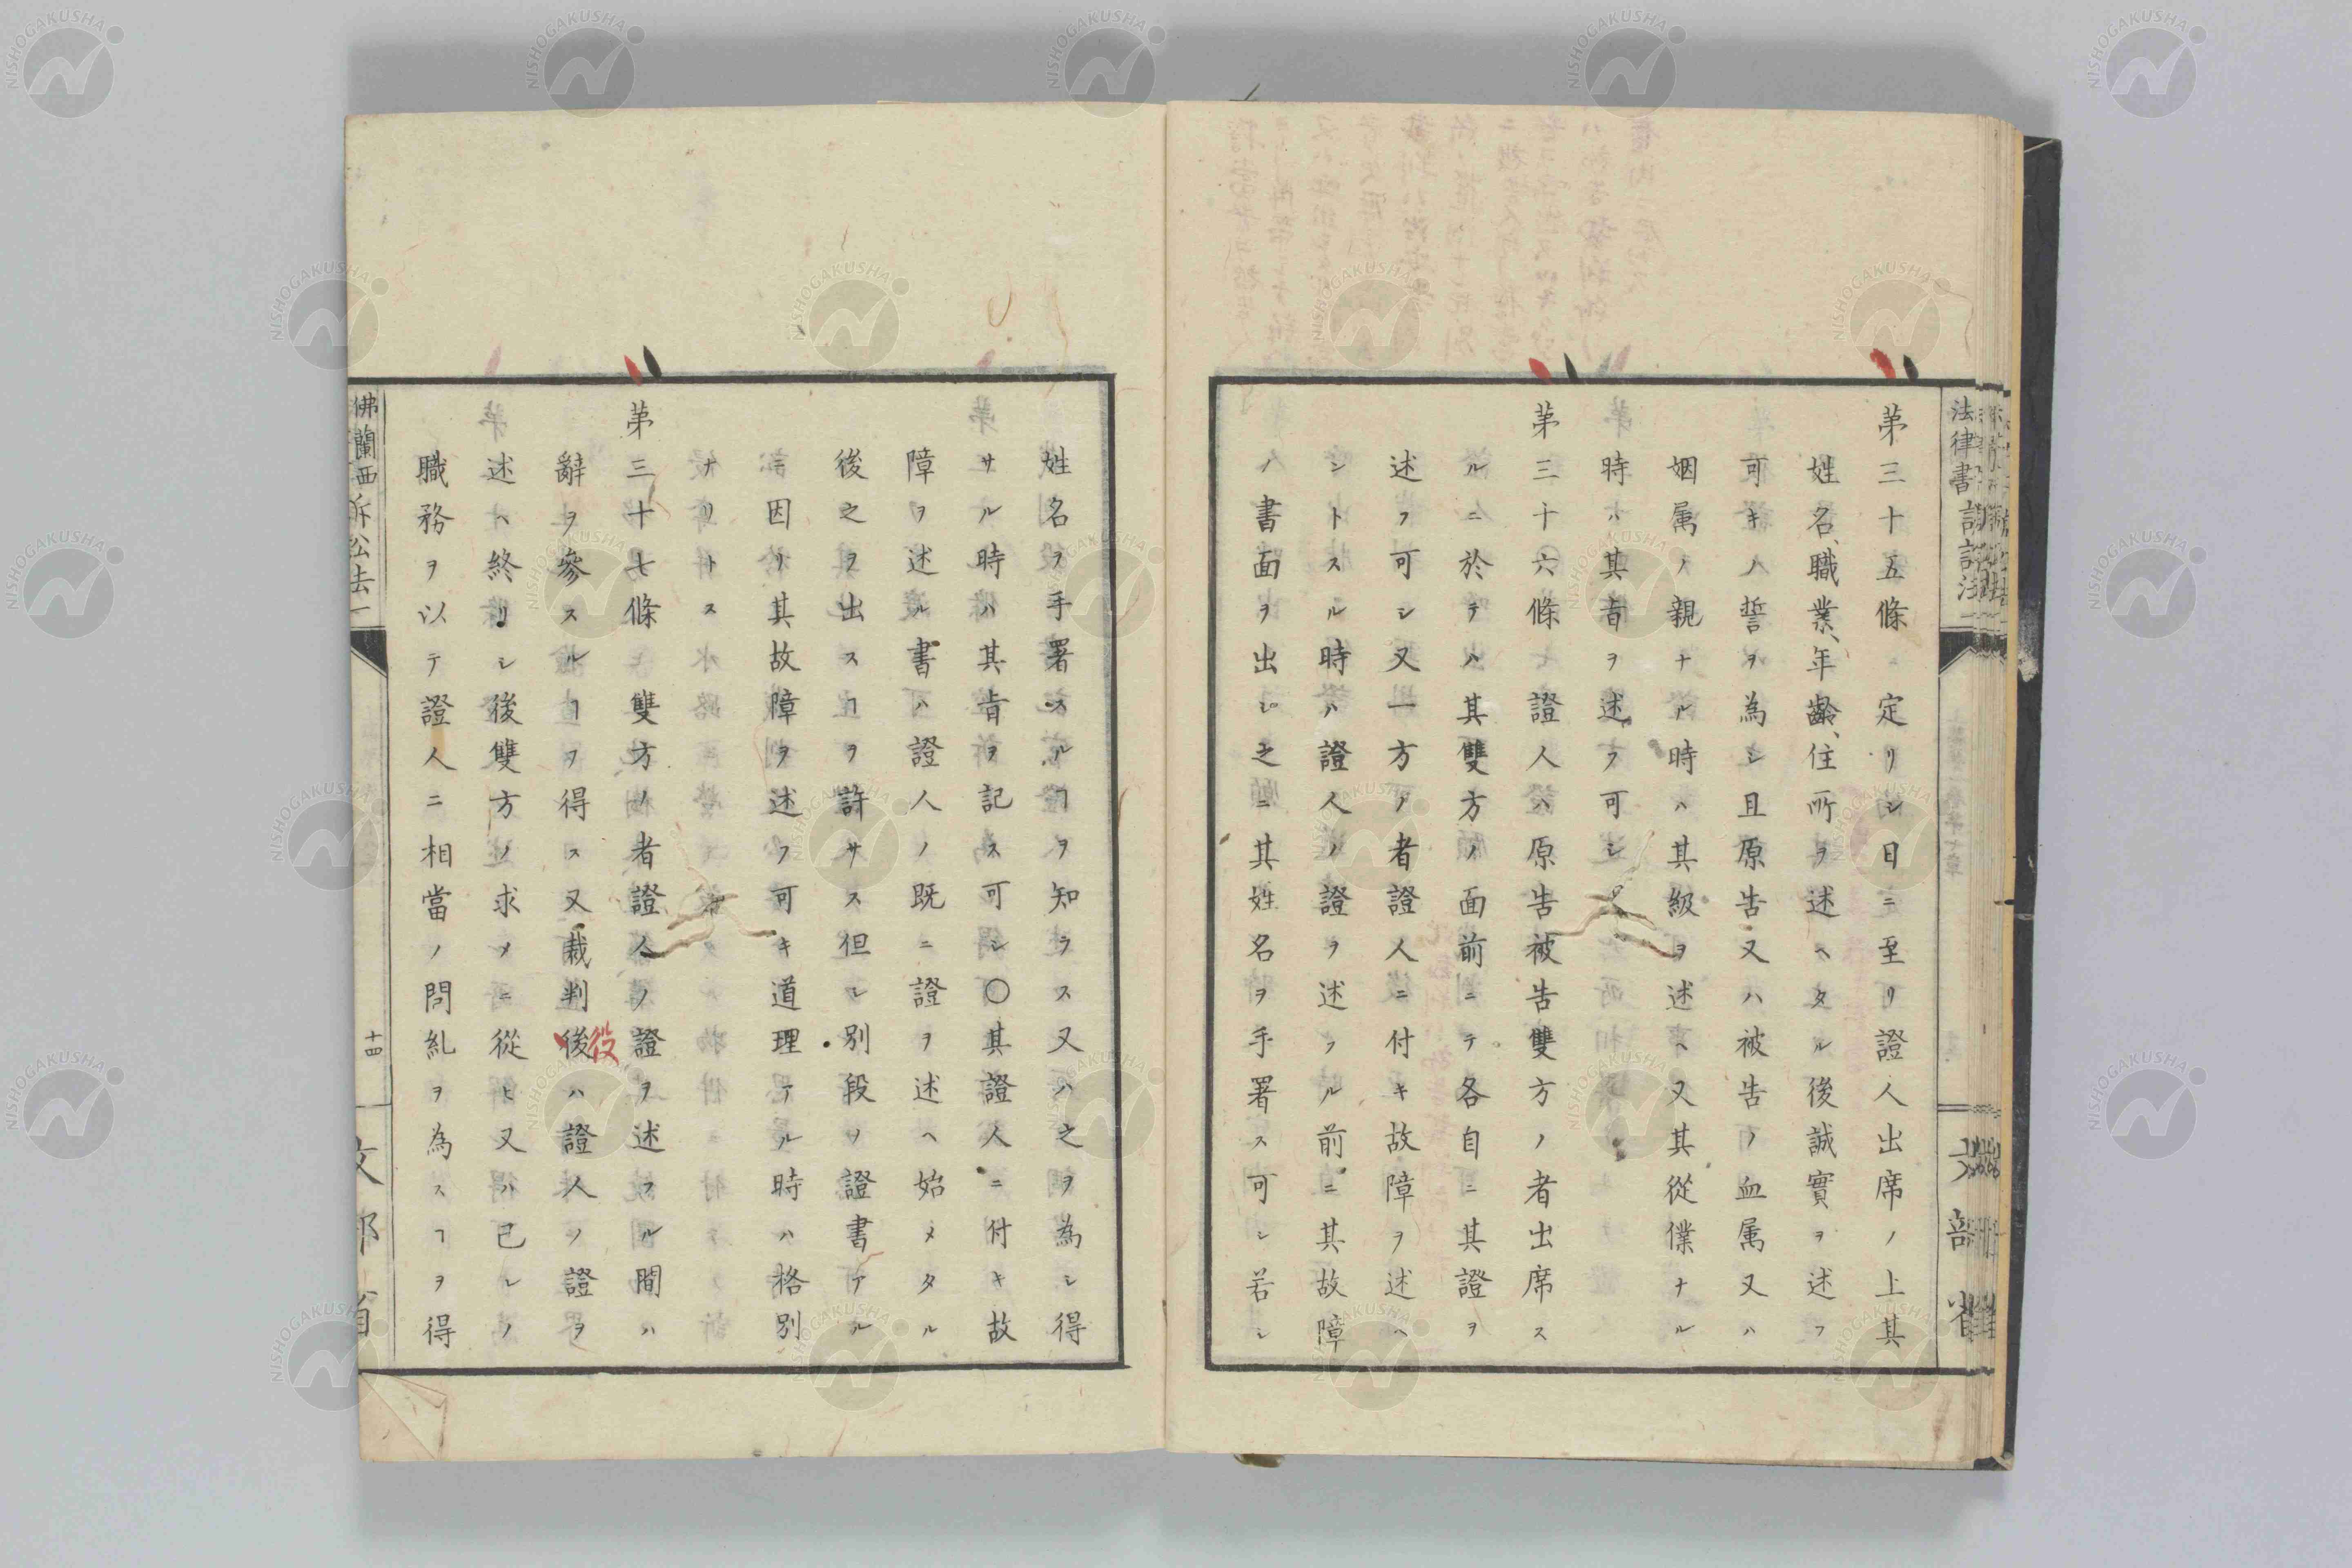 第三十五條 定リシ日ニ至リ證人出席ノ上其
姓名、職業、年齢、住所ヲ述ヘタル後誠實ヲ述フ
可キノ誓ヲ為シ且原告又ハ被告ノ血属又ハ
姻属ノ親ナル時ハ其級ヲ述ヘ又其從僕ナル
時ハ其旨ヲ述フ可シ
第三十六條 證人ハ原告被告雙方ノ者出席ス
ルニ於テハ其雙方ノ面前ニテ各自ニ其證ヲ
述フ可シ又一方ノ者證人ニ付キ故障ヲ述ヘ
ントスル時ハ證人ノ證ヲ述フル前ニ其故障
ノ書面ヲ出シ之ニ其姓名ヲ手署ス可シ若シ
姓名ヲ手署スルヿヲ知ラス又ハ之ヲ為シ得
サル時ハ其旨ヲ記ス可シ○其證人ニ付キ故
障ヲ述ル書ハ證人ノ既ニ證ヲ述ヘ始メタル
後之ヲ出スヿヲ許サス但シ別段ノ證書アル
ニ因リ其故障ヲ述フ可キ道理アル時ハ格別
ナリトス
第三十七條 雙方ノ者證人ノ證ヲ述フル間ハ
辭ヲ參スルヿヲ得ス又裁判後ハ證人ノ證ヲ
役
述ヘ終リシ後雙方ノ求メニ從ヒ又ハ己レノ
職務ヲ以テ證人ニ相當ノ問糺ヲ為スヿヲ得
佛蘭西訴訟法一
十四
文部省